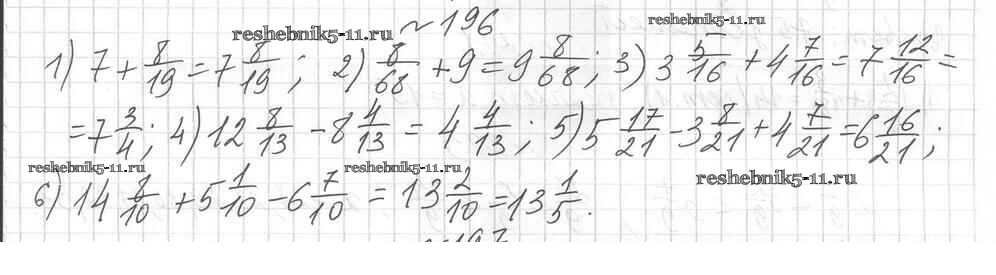 reshebnik5-11.ru
reshebnik5-11.ru
№ 196
1) 7 + 8/19 = 7 8/19; 2) 8/68 + 9 = 9 8/68; 3) 3 5/16 + 4 7/16 = 7 12/16 =
= 7 3/4; 4) 12 8/13 - 8 4/13 = 4 4/13; 5) 5 17/21 - 3 8/21 + 4 7/21 = 6 16/21;
reshebnik5-11.ru
reshebnik5-11.ru
reshebnik5-11.ru
6) 14 8/10 + 5 1/10 - 6 7/10 = 13 2/10 = 13 1/5.